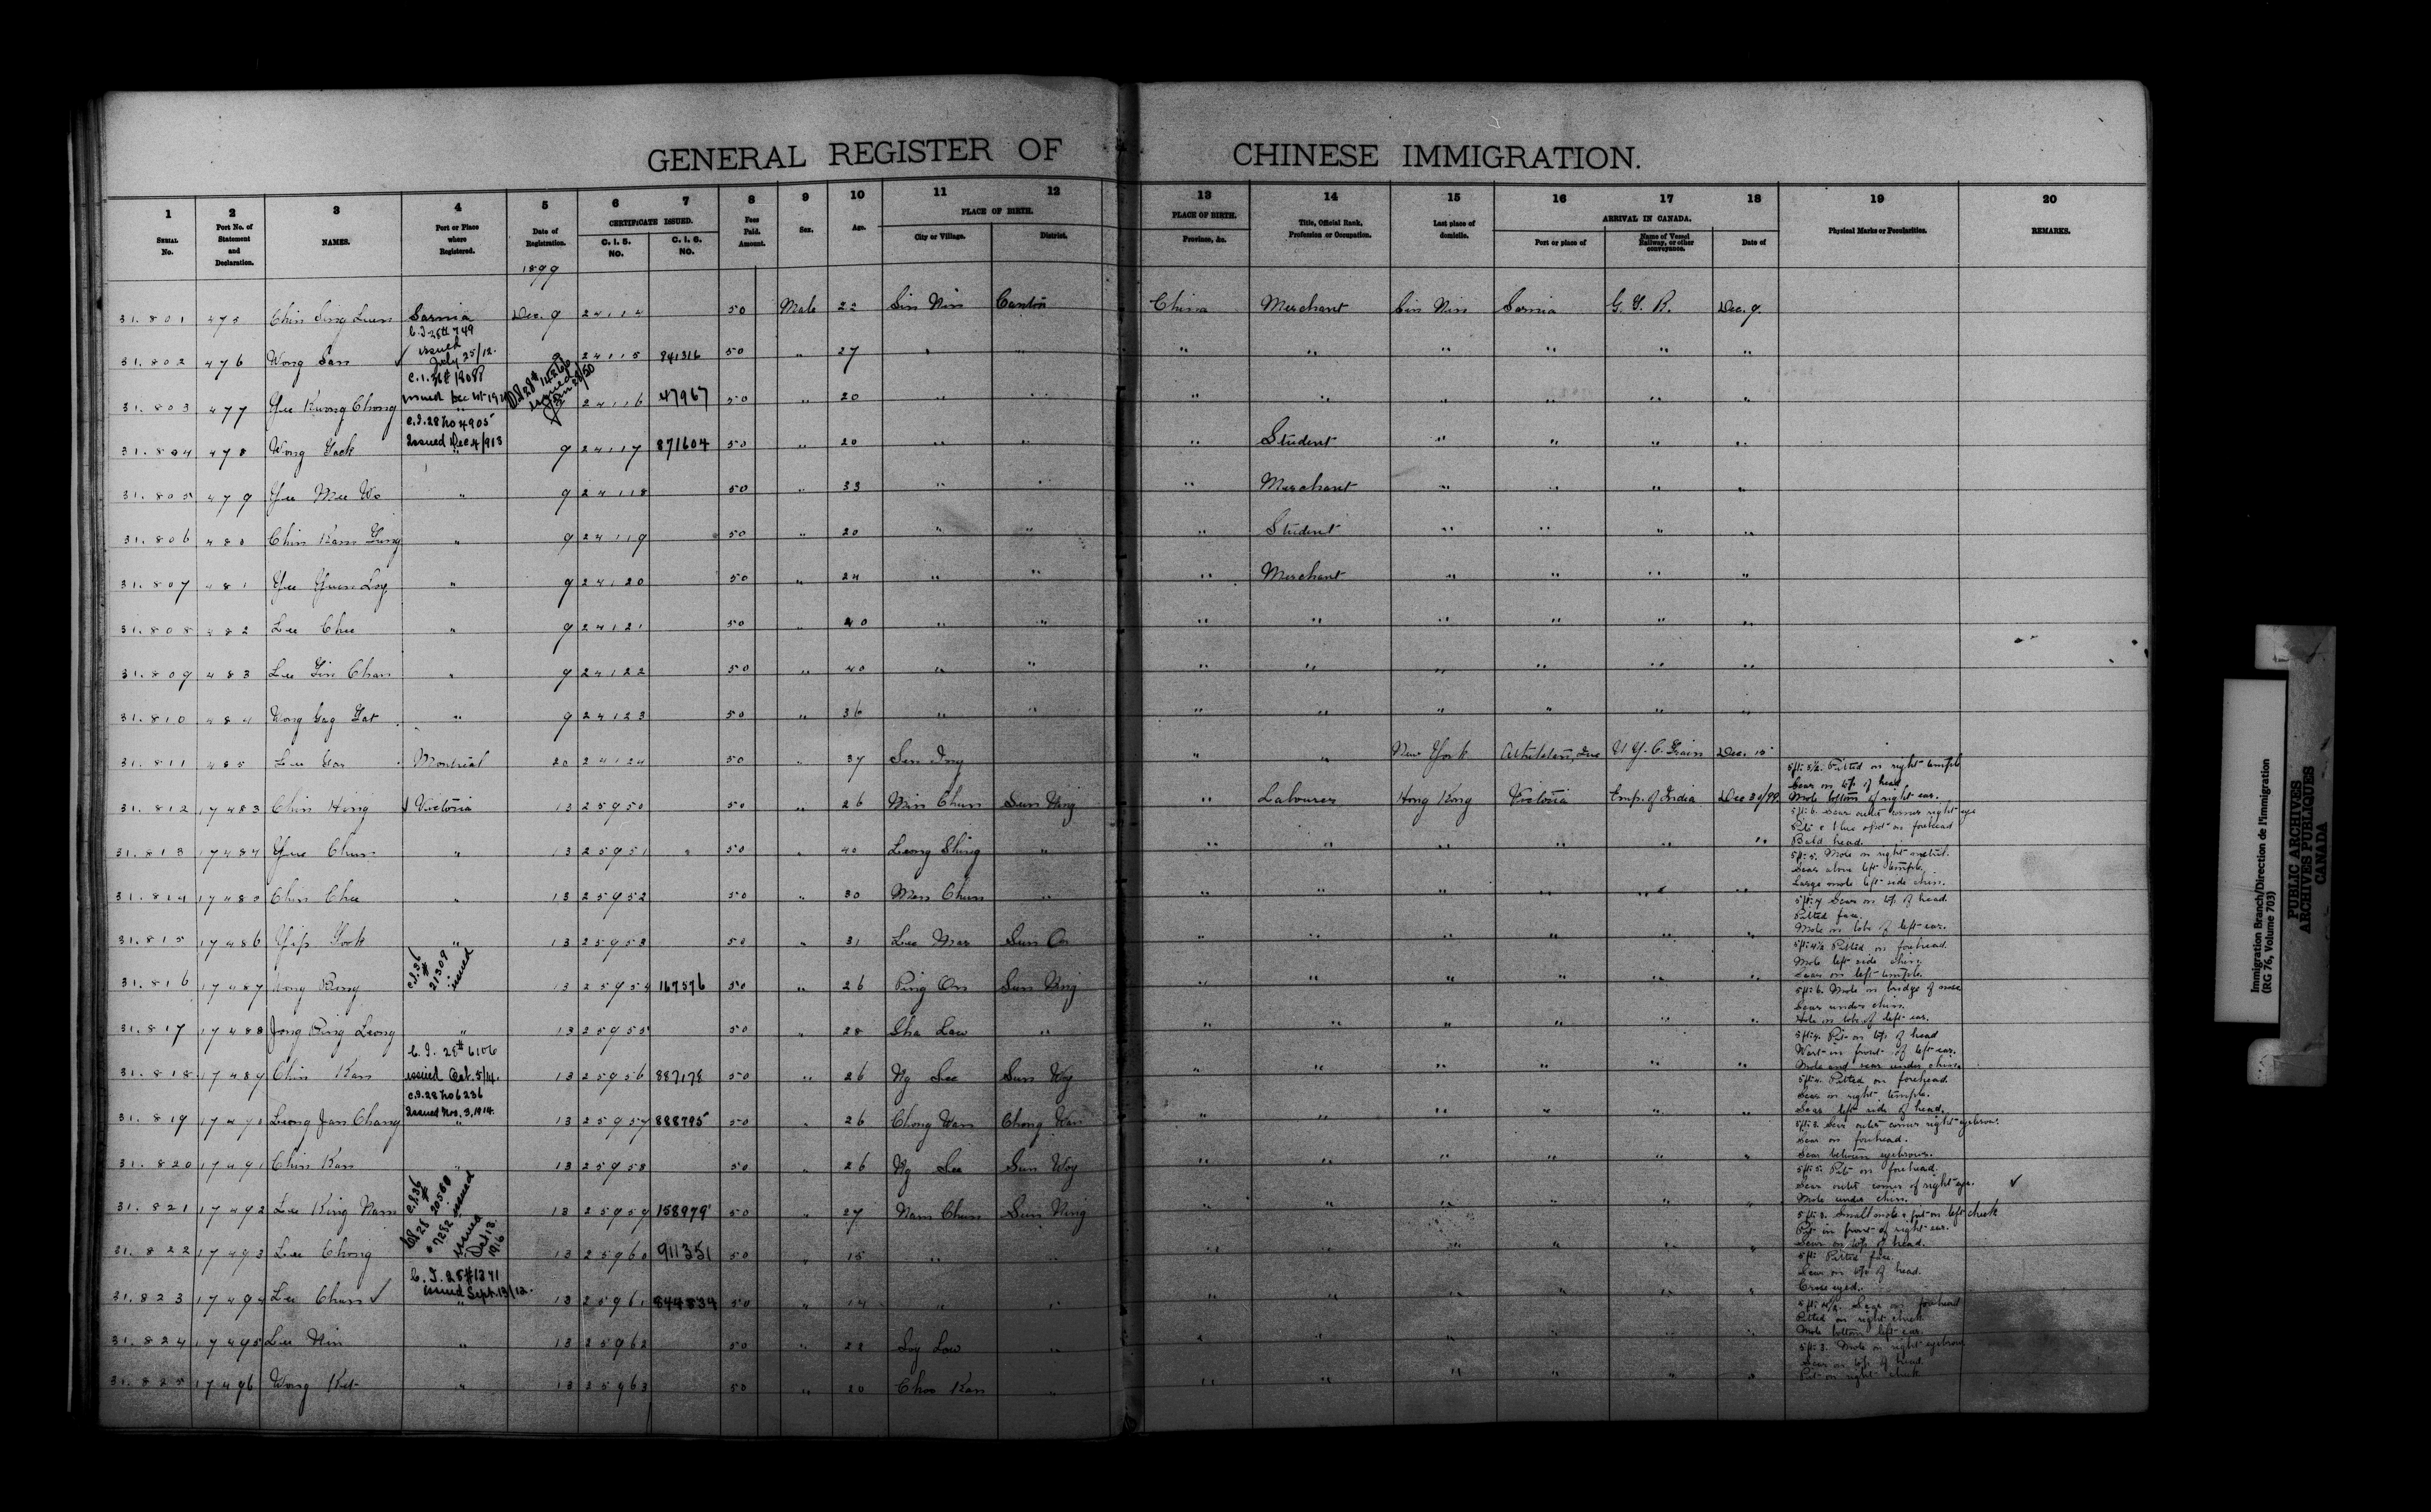 GENERAL REGISTER OF CHINESE IMMIGRATION.
1 2 3 4 5 6 7 8 9 10 11 12 13 14 15 16 17 18 19 20
SERIAL No. Port No. of Statement and Declaration. NAMES. Port or Place where Registered. Date of Registration. CERTIFICATE ISSUED. C. I. 5. NO. C. I. 6. NO. Fees Paid. Amount. Sex. Age. PLACE OF BIRTH. City or Village. District. PLACE OF BIRTH. Province, &c. Title, Official Rank, Profession or Occupation. Last place of domicile. ARRIVAL IN CANADA. Port or place of Name of Vessel Railway, or other conveyance. Date of Physical Marks or Peculiarities. REMARKS.
1899
31.801 475 Chin Sing Luen Sarnia Dec. 9 24114 50 Male 22 Sin Nin Canton China Merchant Sin Nin Sarnia G. T. R. Dec. 9.
issued July 25/12.
31.802 476 Wong San ✓ 9 24115 841316 50 " 27 " " " " " " " "
issued Dec 1st
31.803 477 Yee Kwong Chong " 24116 47967 50 " 20 " " " " " " " "
C.I.28 No 4905
Issued Dec 4/913
31.804 478 Wong Yack " 9 24117 871604 50 " 20 " " " Student " " " "
31.805 479 Yee Mee Wo " 9 24118 50 " 33 " " " Merchant " " " "
31.806 480 Chin Kam Gung " 9 24119 50 " 20 " " " Student " " " "
31.807 481 Yee Yuen Loy " 9 24120 50 " 24 " " " Merchant " " " "
31.808 482 Lee Chee " 9 24121 50 " 40 " " " " " " " "
31.809 483 Lee Gin Chan " 9 24122 50 " 40 " " " " " " " "
31.810 484 Wong Gag Gat " 9 24123 50 " 36 " " " " " " " "
31.811 485 Lee Yor Montreal 20 24124 50 " 37 Sin Ing " " New York N. Y. C. Train Dec. 15
5 ft: 5½. Pitted on right temple
Scar on top of head
Mole bottom of right ear.
31.812 17483 Chin Hing Victoria 13 25950 50 " 26 Min Chun Sun Ning " Labourer Hong Kong Victoria Emp. of India Dec 31/99
5 ft: 6. Scar outer corner right eye
Pit & blue spot on forehead
Bald head.
31.813 17484 Yee Chun " 13 25951 50 " 40 Leong Shing " " " " " " "
5 ft: 5. Mole on right nostril.
Scar above left temple.
Large mole left side chin.
31.814 17485 Chin Chee " 13 25952 50 " 30 Men Chun " " " " " " "
5 ft: 4 Scar on top of head.
Pitted face.
Mole on lobe of left ear.
31.815 17486 Yip Sook " 13 25953 50 " 31 Lee Mar Sun On " " " " " "
5 ft: 4½ Pitted on forehead.
Mole left side chin.
Scar on left temple.
C.I.36 # 21309 issued
31.816 17487 Wong Bing 13 25954 167576 50 " 26 Ping On Sun Ning " " " " " "
5 ft: 6. Mole on bridge of nose
Scar under chin.
Hole in lobe of left ear.
31.817 17488 Jong Bing Leong " 13 25955 50 " 28 Sha Law " " " " " " "
5 ft: 4. Pit on top of head
Wart in front of left ear.
Mole and scar under chin.
C. I. 28 # 6106
issued Oct. 5/14.
31.818 17489 Chin Kan 13 25956 887178 50 " 26 Ng Lee Sun Woy " " " " " "
5 ft: 4. Pitted on forehead
Scar on right temple.
Scar left side of head.
C.I.28 No 6236
Issued Nov. 3, 1914
31.819 17490 Leong Jan Chang " 13 25957 888795 50 " 26 Chong Wan Chong Wan " " " " " "
5 ft: 3. Scar outer corner right eyebrow.
Scar on forehead.
Scar between eyebrows.
31.820 17491 Chin Kan " 13 25958 50 " 26 Ng Lee Sun Woy " " " " " "
5 ft: 5. Pit on forehead.
Scar outer corner of right eye. ✓
Mole under chin.
C.I.36 # 20560 issued
31.821 17492 Lee King Nam 13 25959 158979 50 " 27 Nam Chun Sun Ning " " " " " "
5 ft: 3. Small mole & pit on left cheek
Pit in front of right ear.
Scar on top of head.
issued Oct 13. 1916
31.822 17493 Lee Chong 13 25960 911351 50 " 15 " " " " " " " "
5 ft: Pitted face.
Scar on top of head.
Cross eyed.
C. I. 28 # 1341
issued Sept. 13/12.
31.823 17494 Lee Chun ✓ " 13 25961 844834 50 " 14 " " " " " " " "
Scar on forehead
Pitted on right cheek
Mole bottom left ear.
31.824 17495 Lee Nin " 13 25962 50 " 22 Ioy Low " " " " " " "
5 ft: 3. Mole on right eyebrow
Scar on top of head.
Pit on right cheek
31.825 17496 Wong Kit " 13 25963 50 " 20 Choo Kan " " " " " " "
Immigration Branch/Direction de l'immigration
(RG 76, Volume 703)
PUBLIC ARCHIVES
ARCHIVES PUBLIQUES
CANADA